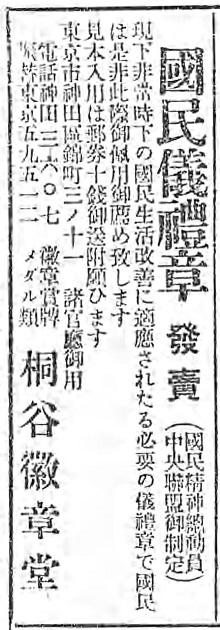 國民儀禮章 發賣
(國民精神總動員
中央聯盟御制定)
現下非常時下の國民生活改善に適應されたる必要の儀禮章で國民
は是非此際御佩用御薦め致します
見本入用は郵券十錢御送附願ひます
東京市神田區錦町三ノ十一 諸官廳御用
電話神田三六〇七
振替東京五九五一二
徽章賞牌
メダル類
桐谷徽章堂